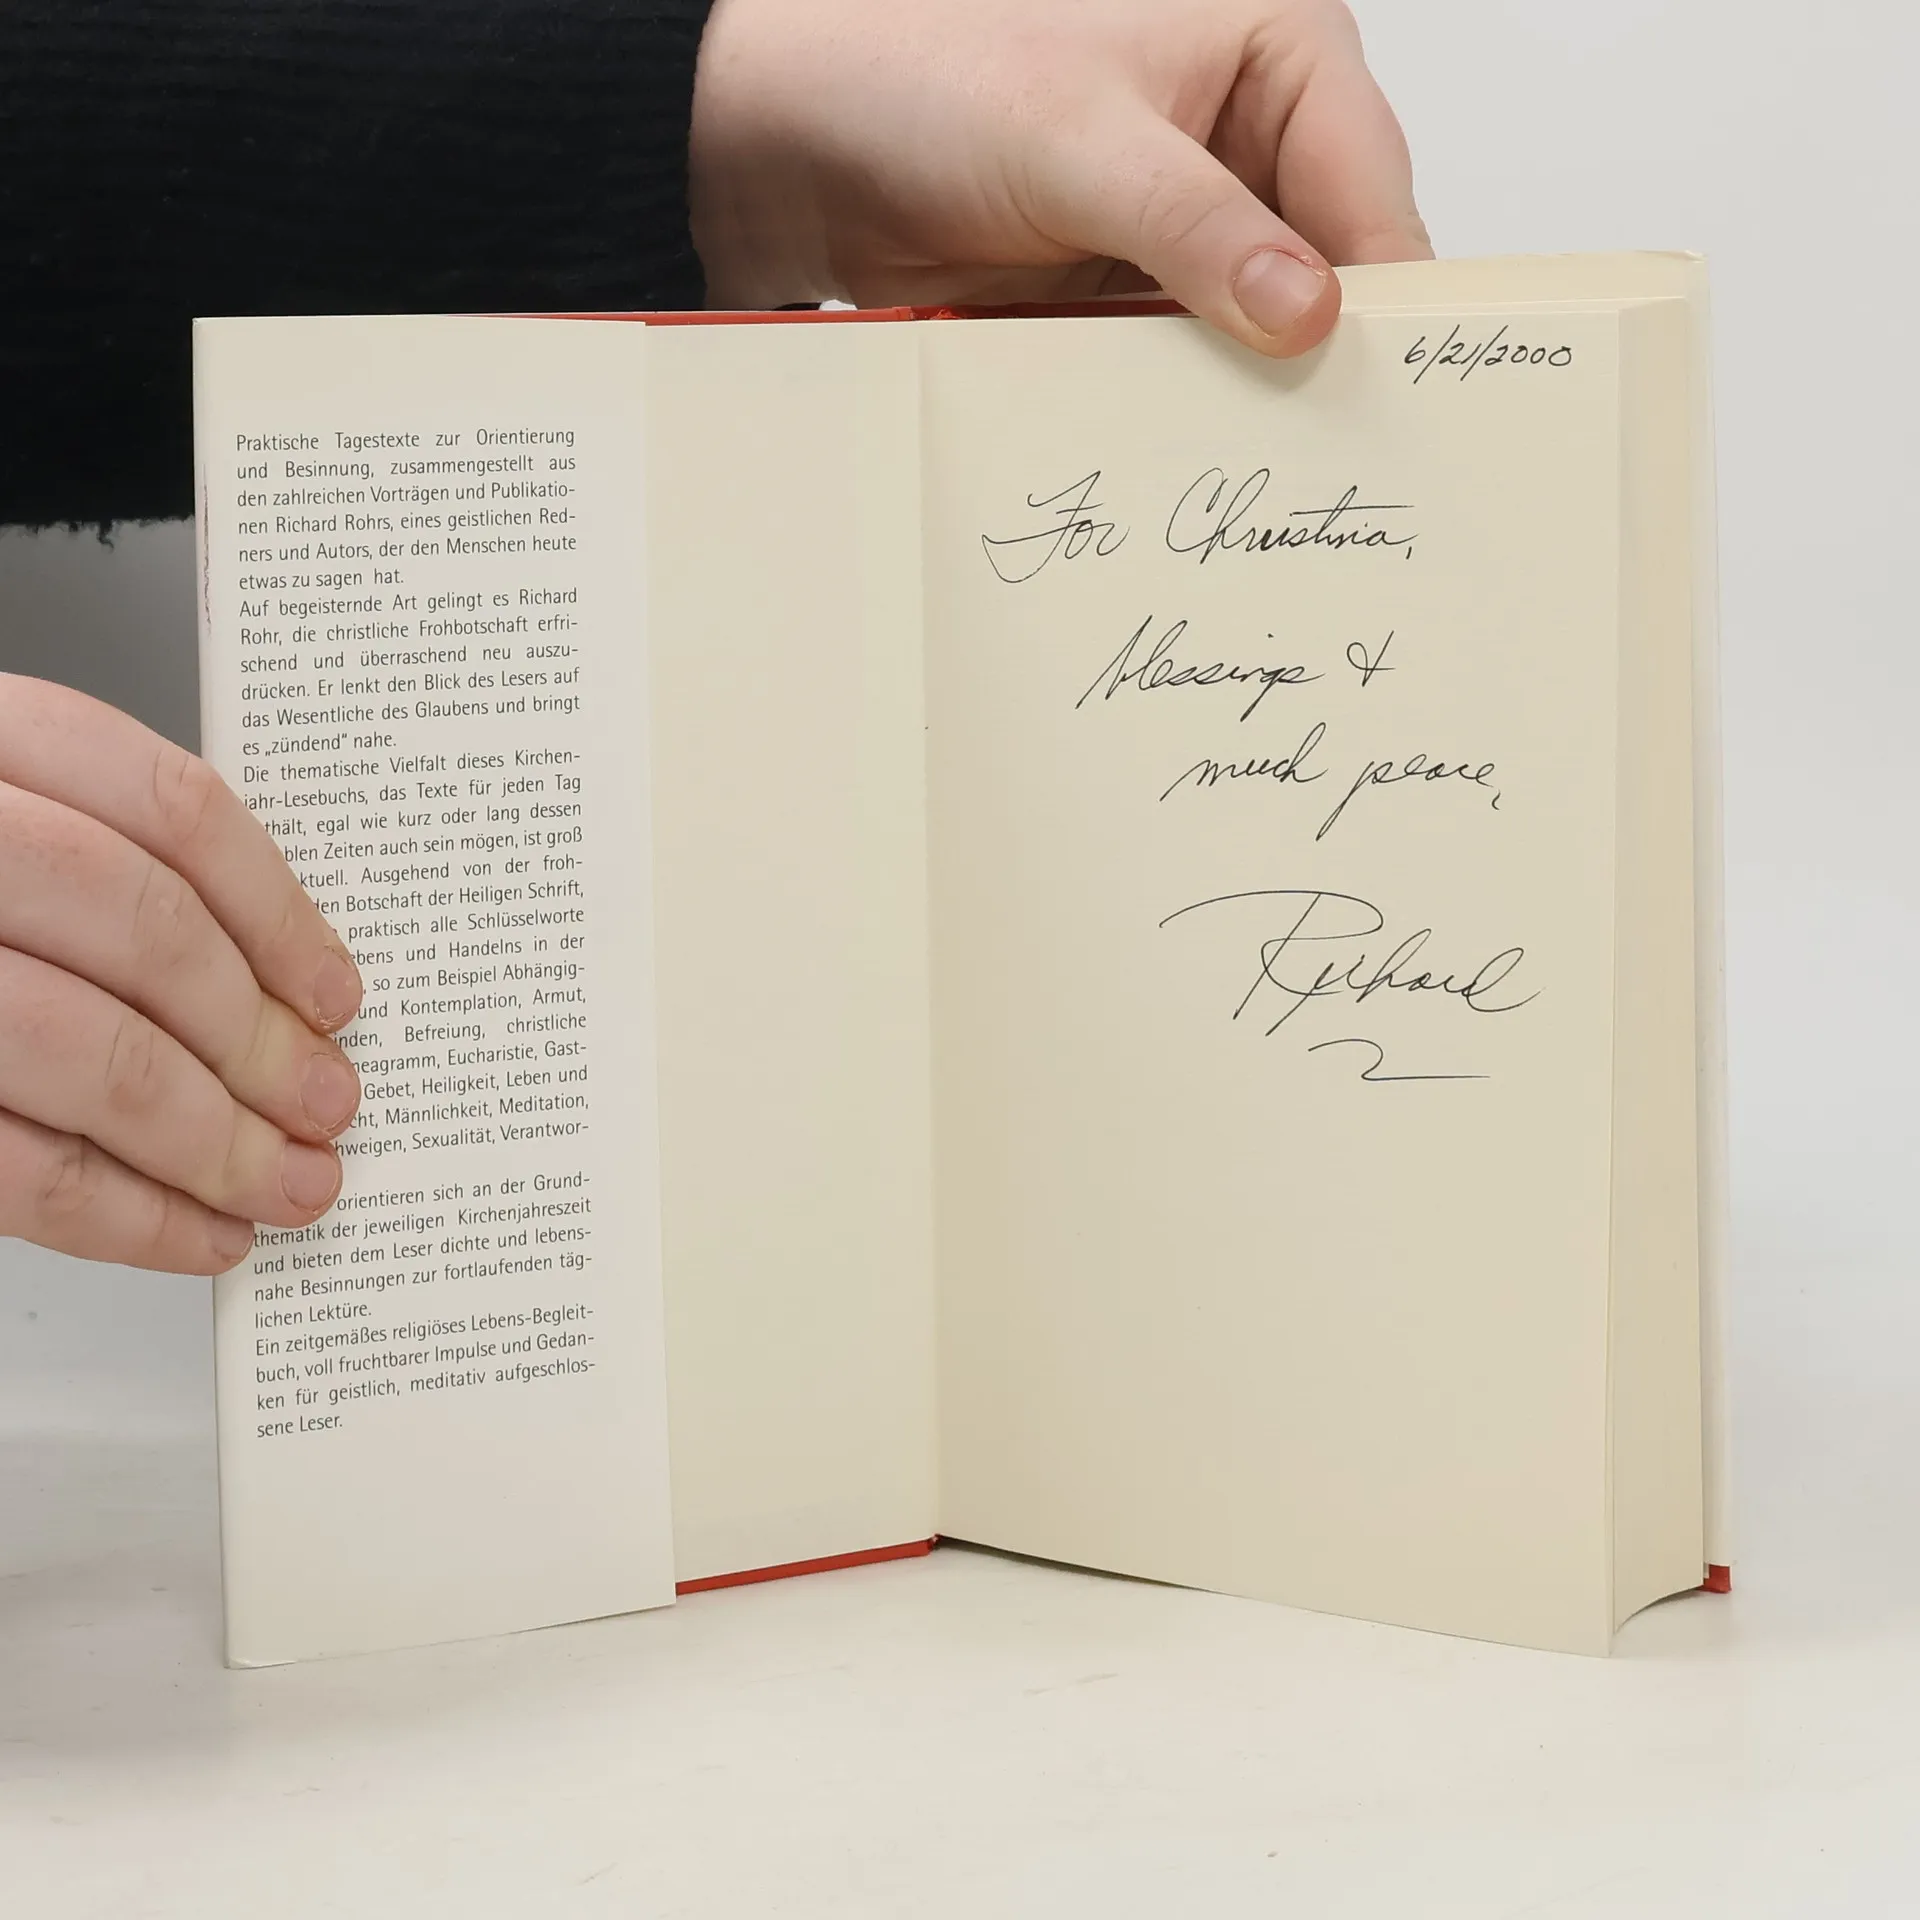 Praktische Tagestexte zur Orientierung
und Besinnung, zusammengestellt aus
den zahlreichen Vorträgen und Publikatio-
nen Richard Rohrs, eines geistlichen Red-
ners und Autors, der den Menschen heute
etwas zu sagen hat.
Auf begeisternde Art gelingt es Richard
Rohr, die christliche Frohbotschaft erfri-
schend und überraschend neu auszu-
drücken. Er lenkt den Blick des Lesers auf
das Wesentliche des Glaubens und bringt
es „zündend“ nahe.
Die thematische Vielfalt dieses Kirchen-
jahr-Lesebuchs, das Texte für jeden Tag
thält, egal wie kurz oder lang dessen
blen Zeiten auch sein mögen, ist groß
ktuell. Ausgehend von der froh-
den Botschaft der Heiligen Schrift,
praktisch alle Schlüsselworte
ebens und Handelns in der
, so zum Beispiel Abhängig-
und Kontemplation, Armut,
inden, Befreiung, christliche
neagramm, Eucharistie, Gast-
Gebet, Heiligkeit, Leben und
cht, Männlichkeit, Meditation,
hweigen, Sexualität, Verantwor-
orientieren sich an der Grund-
thematik der jeweiligen Kirchenjahreszeit
und bieten dem Leser dichte und lebens-
nahe Besinnungen zur fortlaufenden täg-
lichen Lektüre.
Ein zeitgemäßes religiöses Lebens-Begleit-
buch, voll fruchtbarer Impulse und Gedan-
ken für geistlich, meditativ aufgeschlos-
sene Leser.
6/21/2000
For Christina,
blessings &
much peace,
Richard